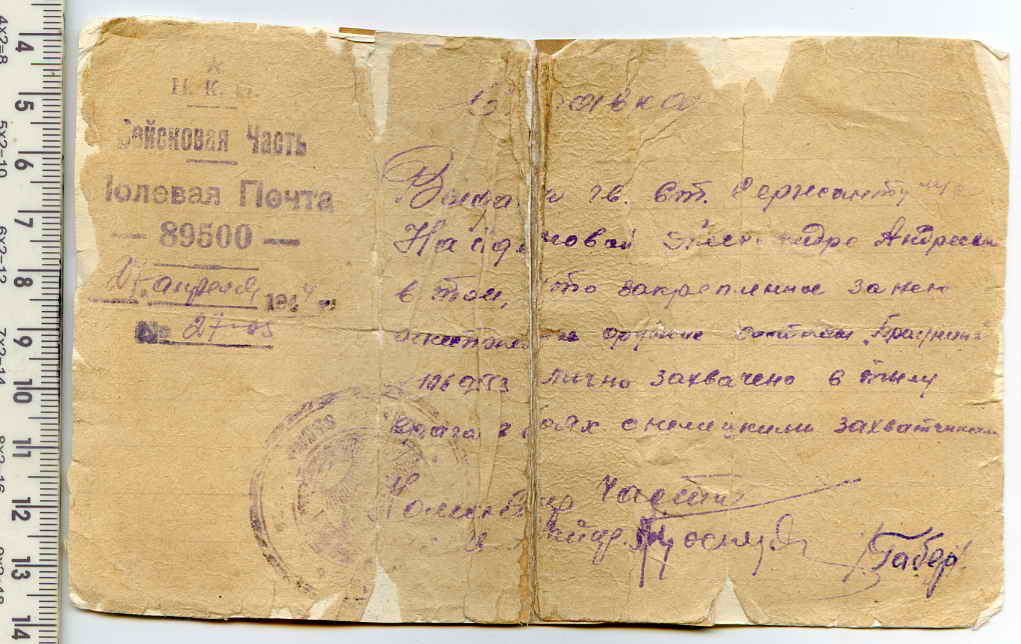 Н. К. О.
Войсковая Часть
Полевая Почта
— 89500 —
апреля 194 г.
№ 27-05
Справка
Выдана гв. Ст. Сержанту
Найденовой Александре Андреевне
в том, что закрепленное за нею
огнестрельное оружие системы „Браунинг"
лично захвачено в тылу
врага в боях с немецкими захватчиками
Командир части
гв. майор
/Табер/
4×2=8
5×2=10
6×2=12
7×2=14
8×2=16
4
5
6
7
8
9
10
11
12
13
14